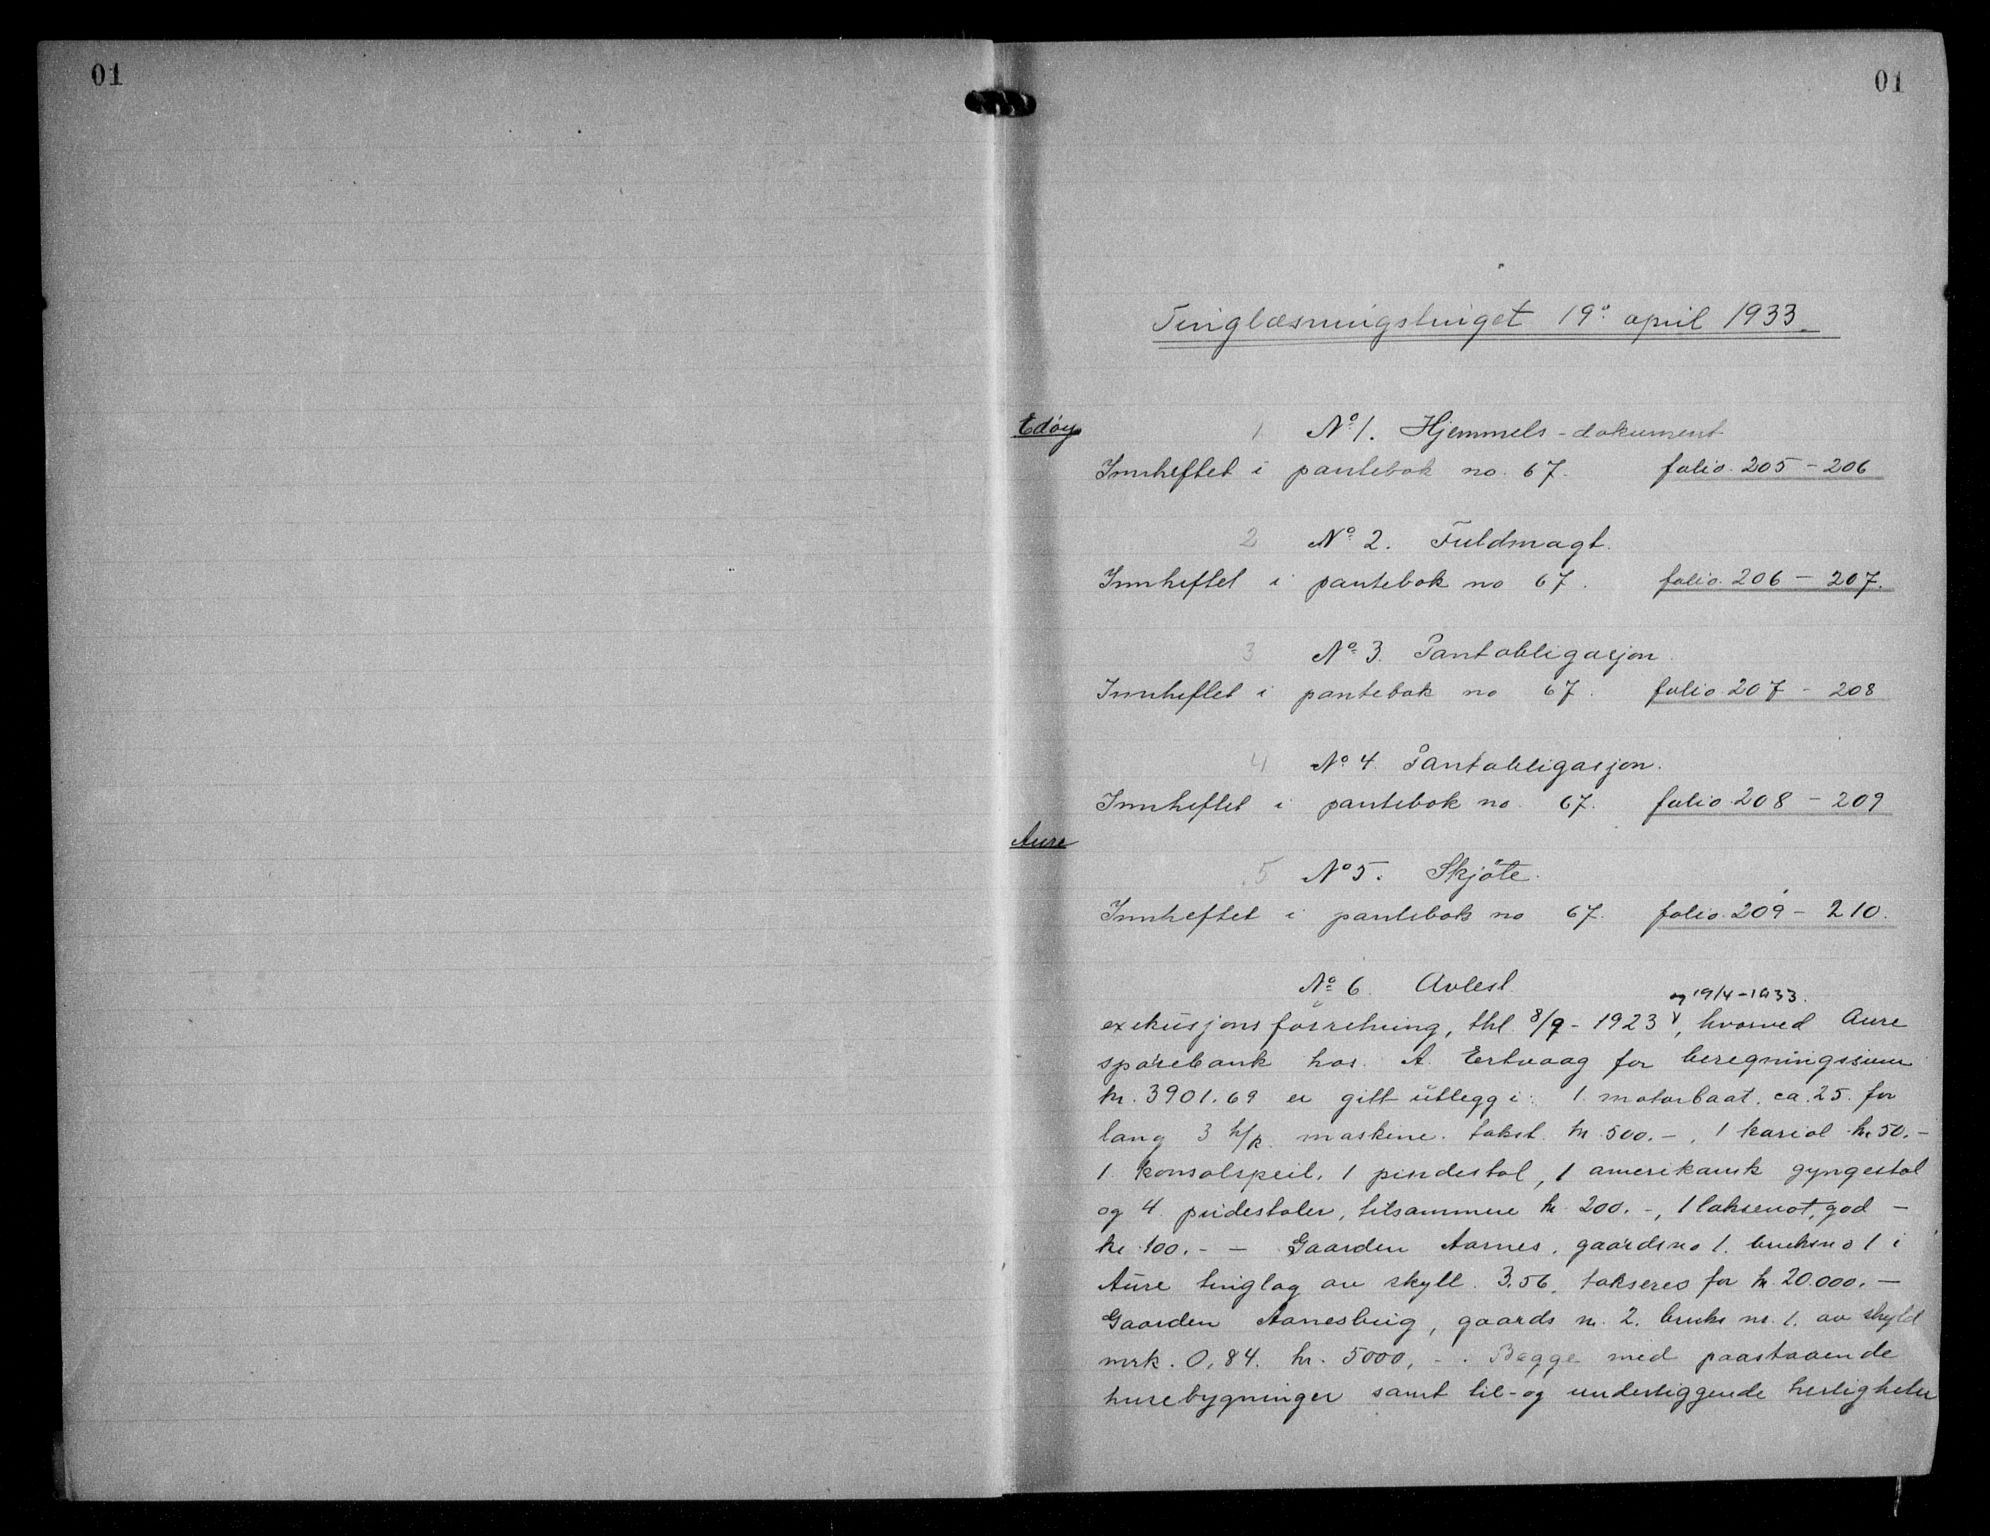 01
01
Tinglæsningstinget 19º april 1933.
Edöy
1 Nº 1. Hjemmels-dokument
Innheftet i pantebok no. 67. folio 205 - 206
2 Nº 2. Fuldmagt.
Innheftet i pantebok no 67. folio 206 - 207.
3 Nº 3. Pantobligasjon.
Innheftet i pantebok no 67. folio 207 - 208
4 Nº 4. Pantobligasjon.
Innheftet i pantebok no. 67. folio 208 - 209
Aure
5 Nº 5. Skjöte.
Innheftet i pantebok no 67. folio 209 - 210.
Nº 6. Avlest
og 19/4-1933.
exekusjonsforretning, thl. 8/9 - 1923, hvorved Aure
sparebank hos A. Ertvaag for beregningssum
kr. 3901.69 er gitt utlegg i: 1 motorbaat. ca. 25. for
lang 3 h/k. maskine. takst. kr 500. -, 1 kariol kr 50. -
1. konsolspeil, 1 pindestol, 1 amerikansk gyngestol
og 4 pindestoler, tilsammen kr 200. -, 1 laksenot, god -
kr. 100. - - Gaarden Aarnes, gaardsno 1. bruksno 1 i
Aure tinglag av skyll. 3.56, takseres for kr. 20.000. -
Gaarden Aanesbug, gaards nr. 2. bruks nr. 1. av skyld
mrk. 0,84. kr. 5000, - . Begge med paastaaende
husebygninger samt til- og underliggende herligheter